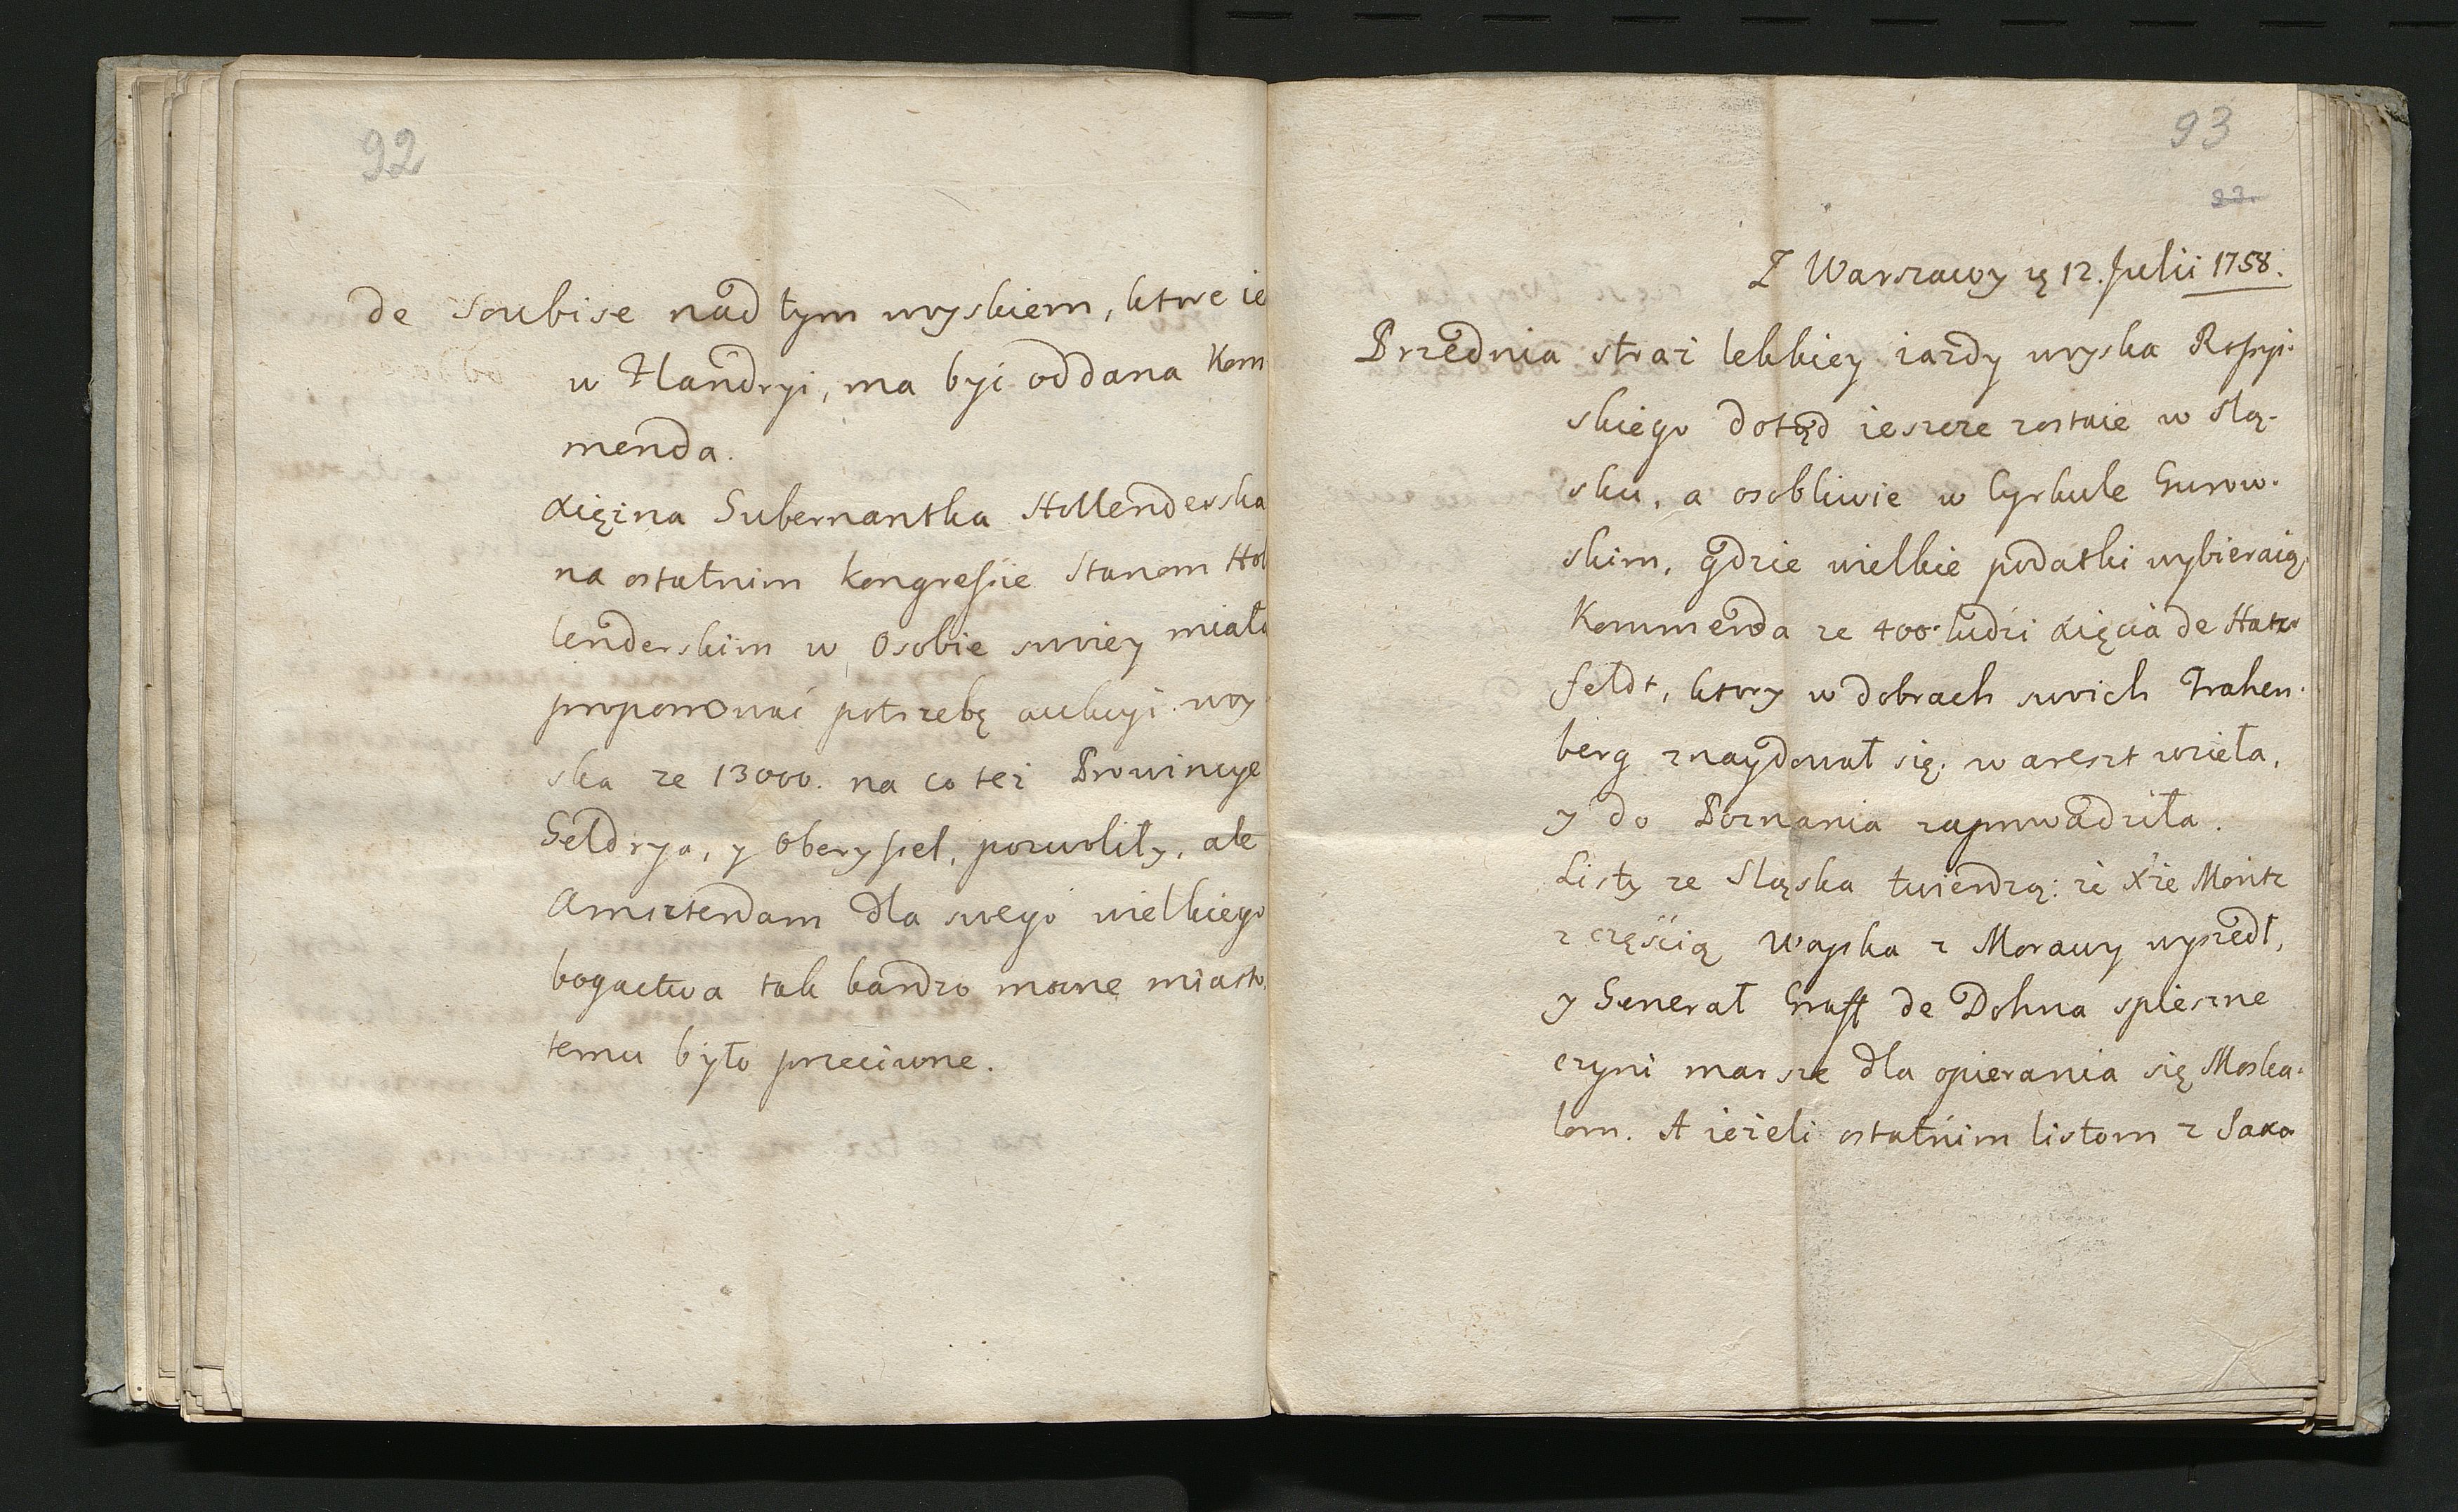 92
de Soubise nad tym woyskiem, ktore ie
w Flandryi, ma byi oddana Kom
menda.
Xięzna Gubernantka Hollenderska
na ostatnim kongressie Stanom Hol
lenderskim w Osobie swoiey miała
proponować potrzebę aukcyi woy
ska ze 13000. na co tez Prowincye
Geldrya, y Oberyssel, pozwoliły, ale
Amszterdam dla swego wielkiego
bogactwa tak bardzo mocne miasto,
temu było przeciwne.
93
22.
Z Warszawy 12. Julii 1758.
Przednia straz lekkiey iazdy woyska Rossyi-
skiego dotąd ieszcze zostaie w Slą-
sku, a osobliwie w Cyrkule Gurow-
skim, gdzie wielkie podatki wybieraią,
Kommenda ze 400. ludzi Xięcia de Hatz-
feldt, ktory w dobrach swoich Trahen-
berg znaydował się, w areszt wzieła,
y do Poznania zaprowadziła.
Listy ze Sląska twierdzą: ze Xże Moritz
z częścią Woyska z Morawy wyszedł,
y Generał Graff de Dohna spieszne
czyni marsze dla opierania się Moska-
lom. A iezeli ostatnim listom z Saxo